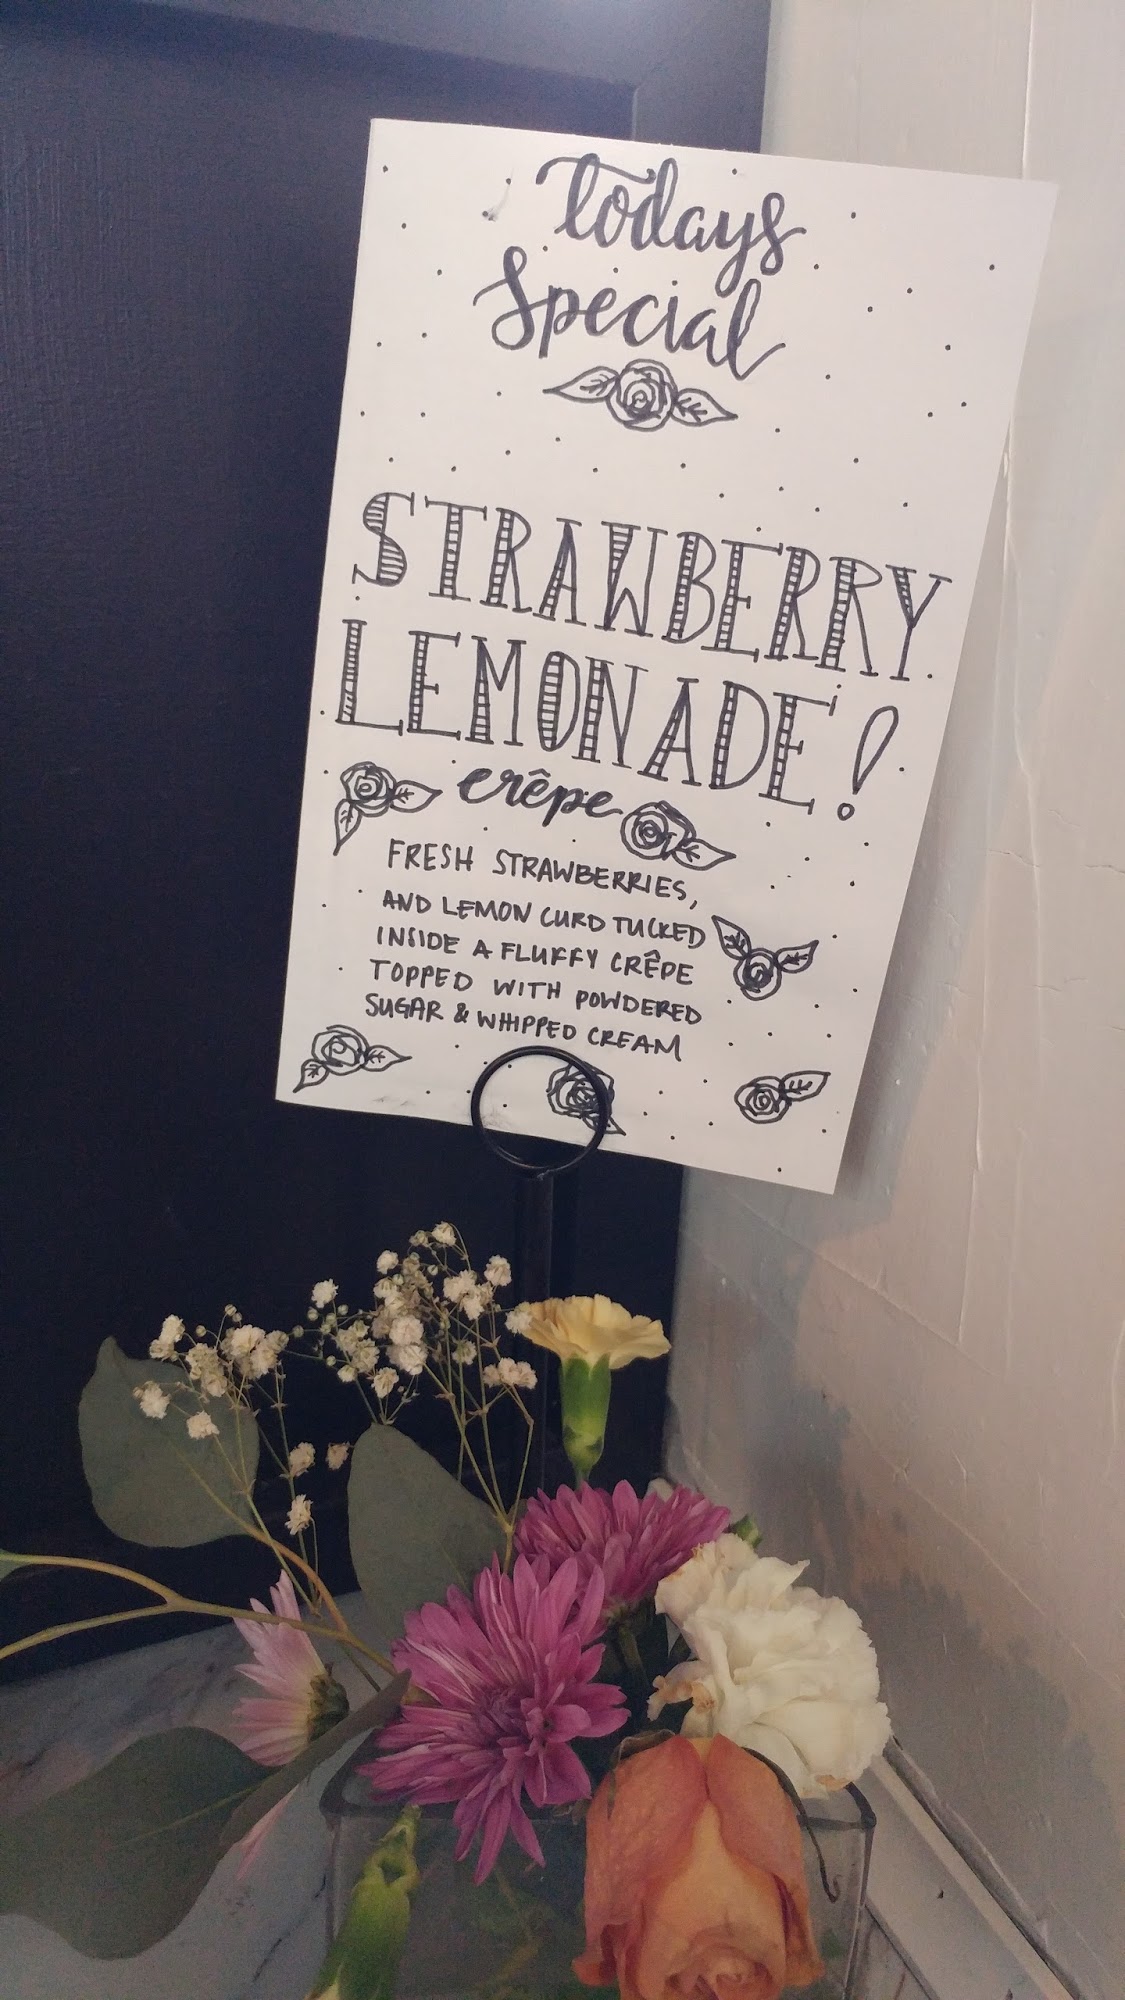 Todays
Special
STRAWBERRY
LEMONADE!
crêpe
FRESH STRAWBERRIES,
AND LEMON CURD TUCKED
INSIDE A FLUFFY CRÊPE
TOPPED WITH POWDERED
SUGAR & WHIPPED CREAM